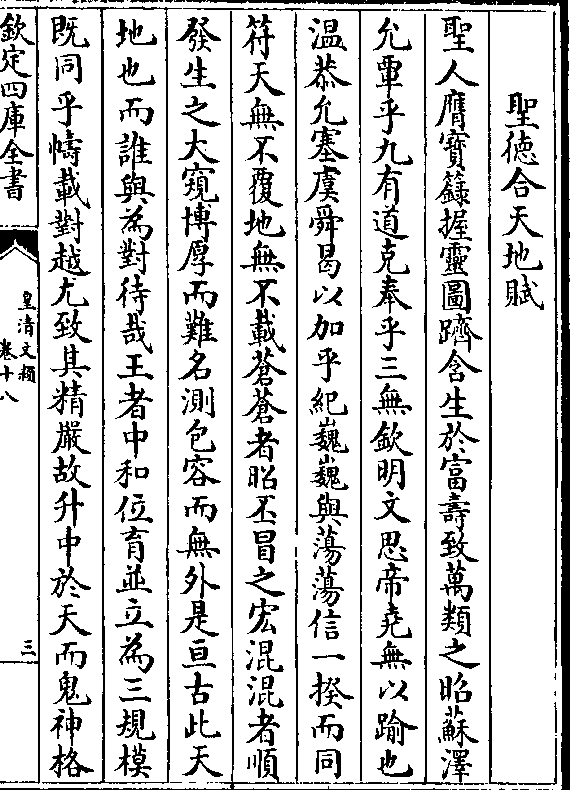 聖德合天地賦
聖人膺寳籙握靈圖躋含生於富壽致萬類之昭蘇澤
允覃乎九有道克奉乎三無欽明文思帝堯無以踰也
温恭允塞虞舜曷以加乎紀巍巍與蕩蕩信一揆而同
符天無不覆地無不載蒼蒼者昭丕冒之宏混混者順
發生之大窺博厚而難名測包容而無外是亘古此天
地也而誰與為對待哉王者中和位育並立為三規模
既同乎幬載對越尤致其精嚴故升中於天而鬼神格
欽定四庫全書
皇清文穎
卷十八
三